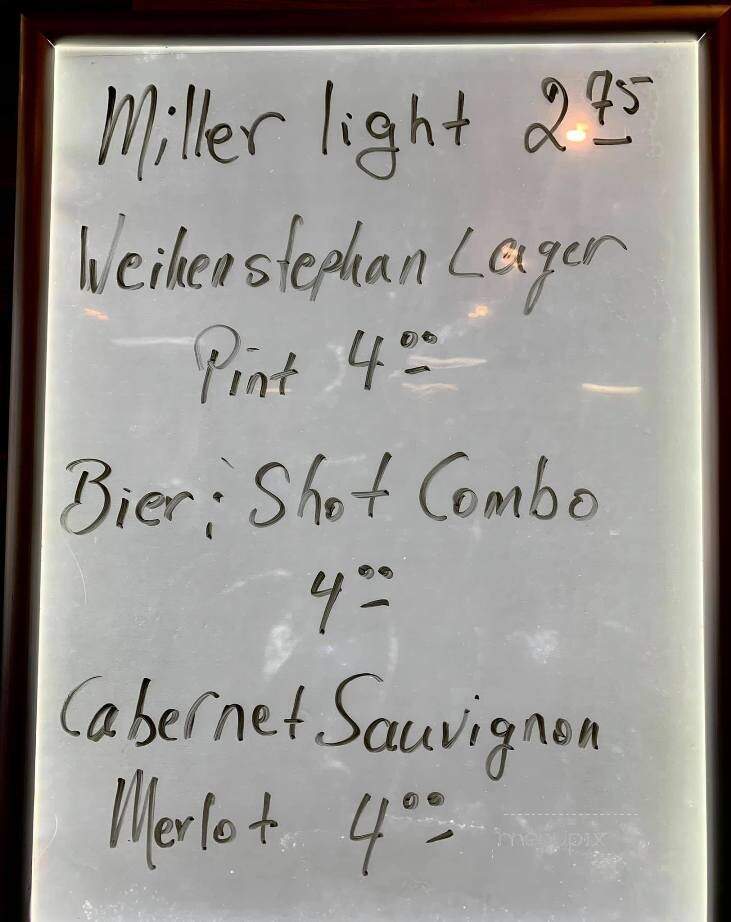 Miller light 2.75
Weihenstephan Lager
Pint 4.00
Bier; Shot Combo
4.00
Cabernet Sauvignon
Merlot 4.00
menupix